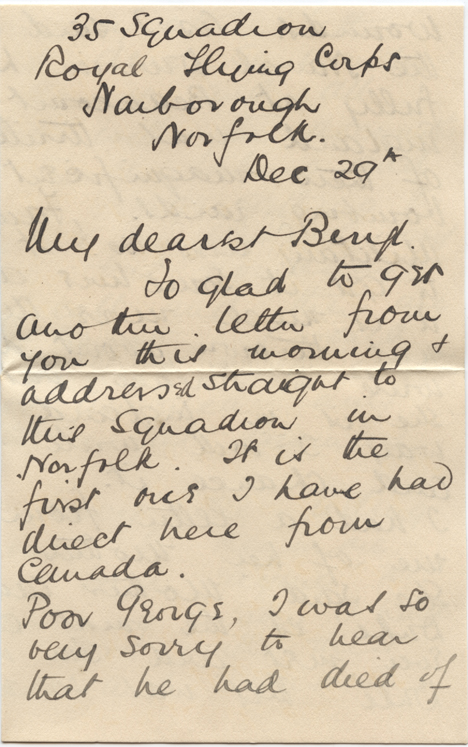 35 Squadron
Royal Flying Corps
Narborough
Norfolk.
Dec 29th
My dearest Beryl.
So glad to get
another letter from
you this morning &
addressed straight to
this Squadron in
Norfolk. It is the
first one I have had
direct here from
Canada.
Poor George, I was so
very sorry to hear
that he had died of